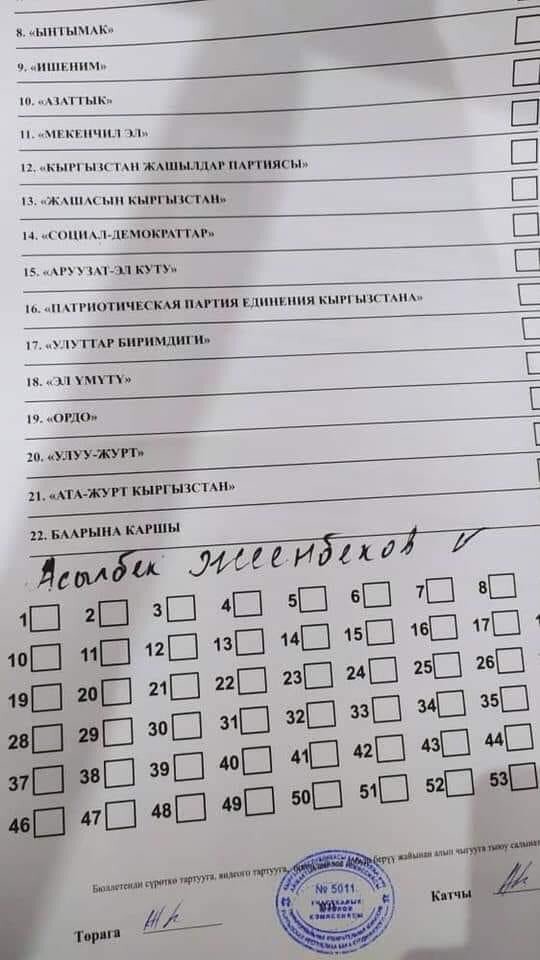 8. «ЫНТЫМАК»
9. «ИШЕНИМ»
10. «АЗАТТЫК»
11. «МЕКЕНЧИЛ ЭЛ»
12. «КЫРГЫЗСТАН ЖАШЫЛДАР ПАРТИЯСЫ»
13. «ЖАШАСЫН КЫРГЫЗСТАН»
14. «СОЦИАЛ-ДЕМОКРАТТАР»
15. «АРУУЗАТ-ЭЛ КУТУ»
16. «ПАТРИОТИЧЕСКАЯ ПАРТИЯ ЕДИНЕНИЯ КЫРГЫЗСТАНА»
17. «УЛУТТАР БИРИМДИГИ»
18. «ЭЛ ҮМҮТҮ»
19. «ОРДО»
20. «УЛУУ-ЖУРТ»
21. «АТА-ЖУРТ КЫРГЫЗСТАН»
22. БААРЫНА КАРШЫ
Асылбек Жеенбеков
1 2 3 4 5 6 7 8
10 11 12 13 14 15 16 17
19 20 21 22 23 24 25 26
28 29 30 31 32 33 34 35
37 38 39 40 41 42 43 44
46 47 48 49 50 51 52 53
Бюллетенди сүрөткө тартууга, видеого тартууга, берүү жайынан алып чыгууга тыюу салынат
№ 5011
УЧАСТКАЛЫК
ШАЙЛОО
КОМИССИЯСЫ
Төрага
Катчы